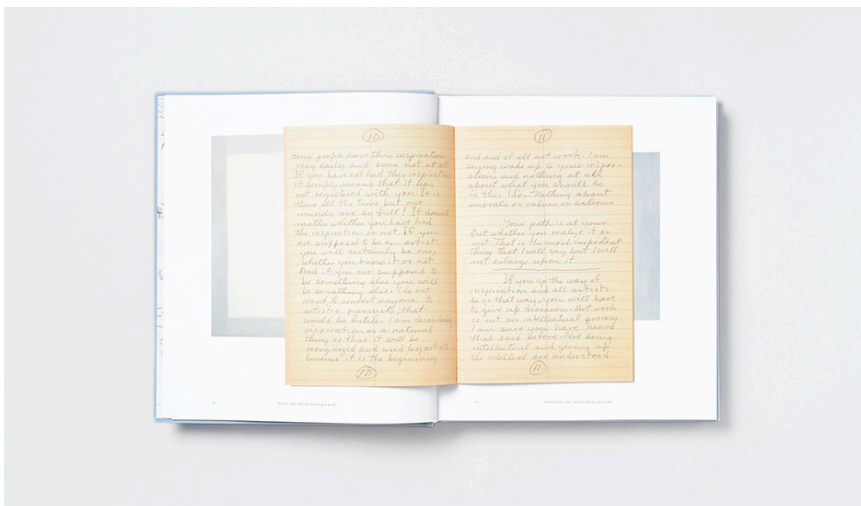 10
some people have this inspiration
very early and some not at all
If you have not had this inspiration
it simply means that it has
not registered with you. It is
there all the time but our
minds are so full! It dosnt
matter whether you have had
the inspiration or not. If you
are supposed to be an artist
you will certainly be one,
whether you know it or not
And if you are supposed to
be something else you will
be something else. I do not
want to convert anyone to
artistic pursuits, that
would be futile. I am describing
inspiration as a natural
thing so that it will be
recognized and used by artists
because it is the beginning
10
11
and end of all art work. I am
saying wake up to your inspir-
ations and nothing at all
about what you should do
in this life. Nothing about
morals or values or actions
Your path is at your
feet whether you realize it or
not. That is the most important
thing that I will say but I will
not enlarge upon it.
If you go the way of
inspiration and all artists
do go that way, you will have
to give up Art work
is not an intellectual process
I am sure you have heard
that said before. Not being
intellectual and giving up
the intellect are understood
11